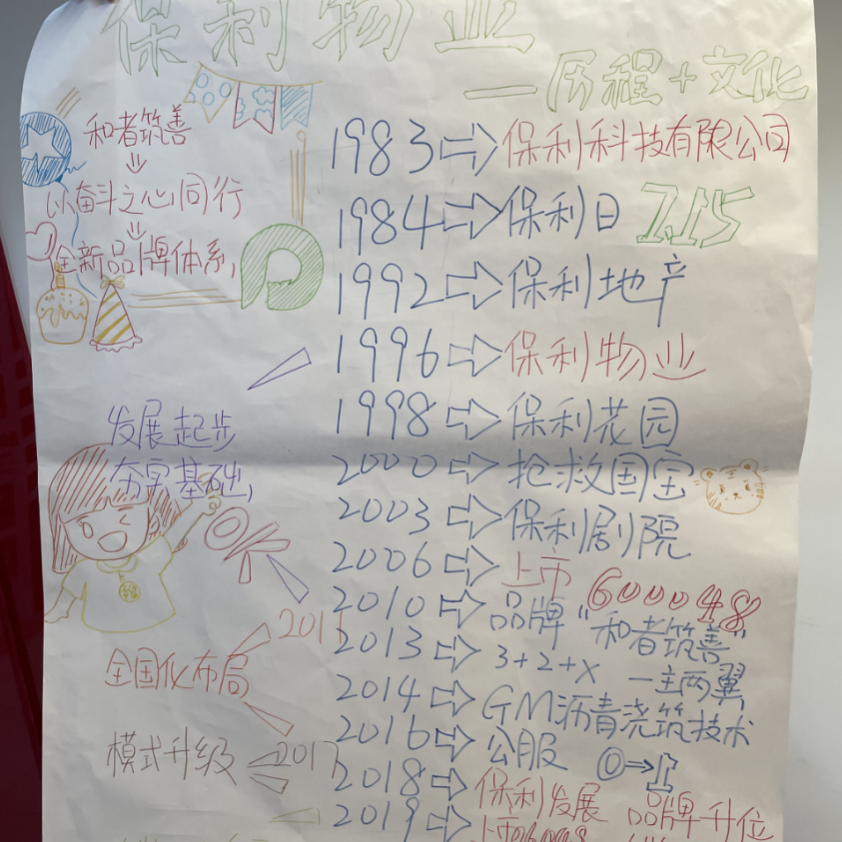 保利物业
——历程+文化
和者筑善
以奋斗之心同行
全新品牌体系,
1983⇒保利科技有限公司
1984⇒保利日 7.15
1992⇒保利地产
1996⇒保利物业
1998⇒保利花园
2000⇒抢救国宝
2003⇒保利剧院
2006⇒上市 600048
2010⇒品牌"和者筑善"
2013⇒3+2+X 一主两翼
2014⇒GM沥青浇筑技术
2016⇒公服 0→1
2018⇒保利发展 品牌升位
2019⇒上市
发展起步
夯实基础,
OK
全国化布局
模式升级 2017